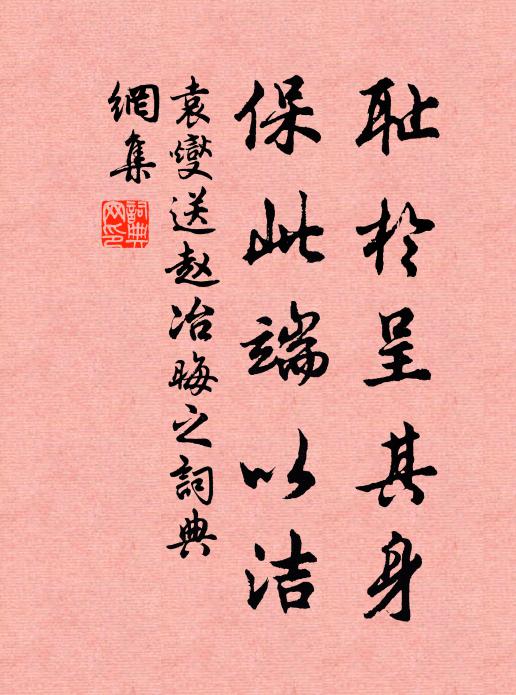 耻於呈其身
保此端以洁
袁燮送赵冶晦之詞典
網集
詞典網印